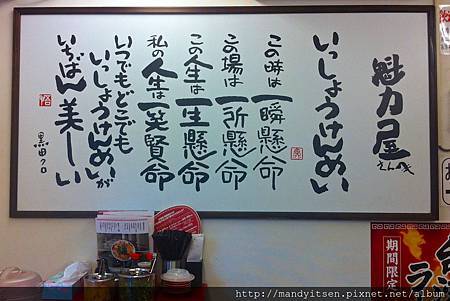 魁力屋
いっしょうけんめい
この時は一瞬懸命
この場は一所懸命
この生は一生懸命
私の人生は一笑賢命
いつでもどこでも
いっしょうけんめいが
いちばん美しい
黒田クロ
期間限定
http://mandyitsen.pixnet.net/album